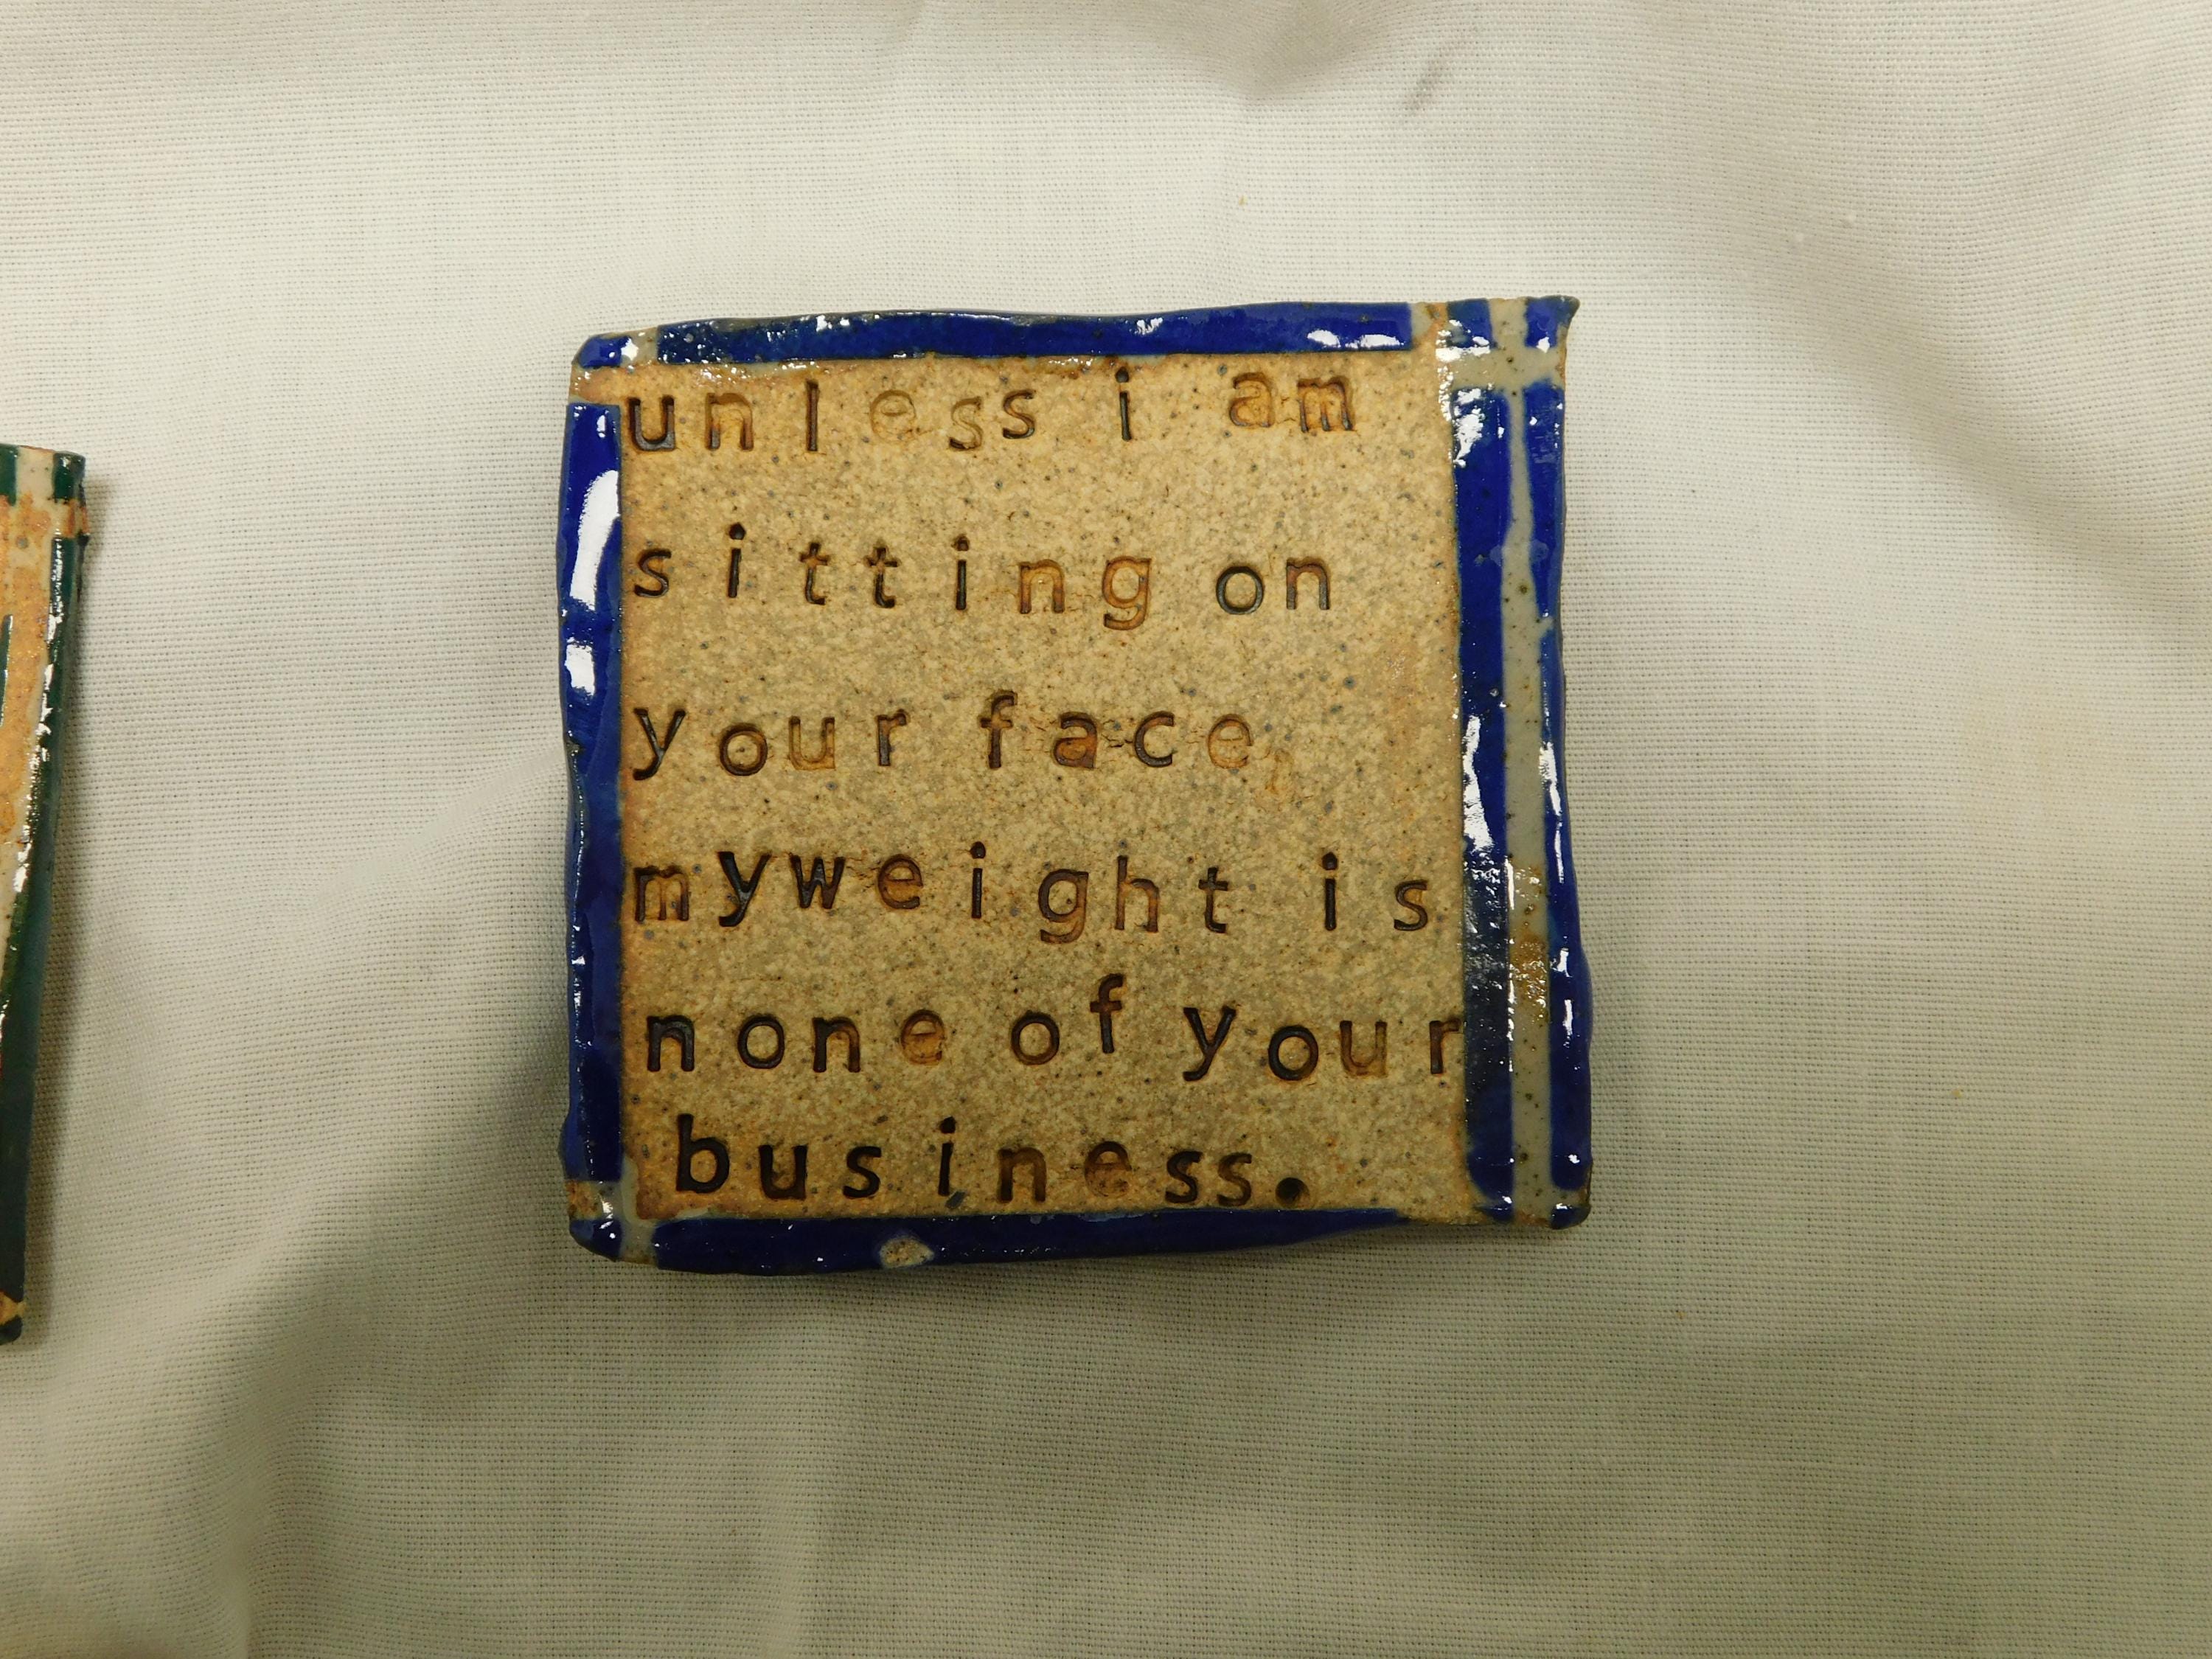 unless i am
sitting on
your face,
myweight is
none of your
business.